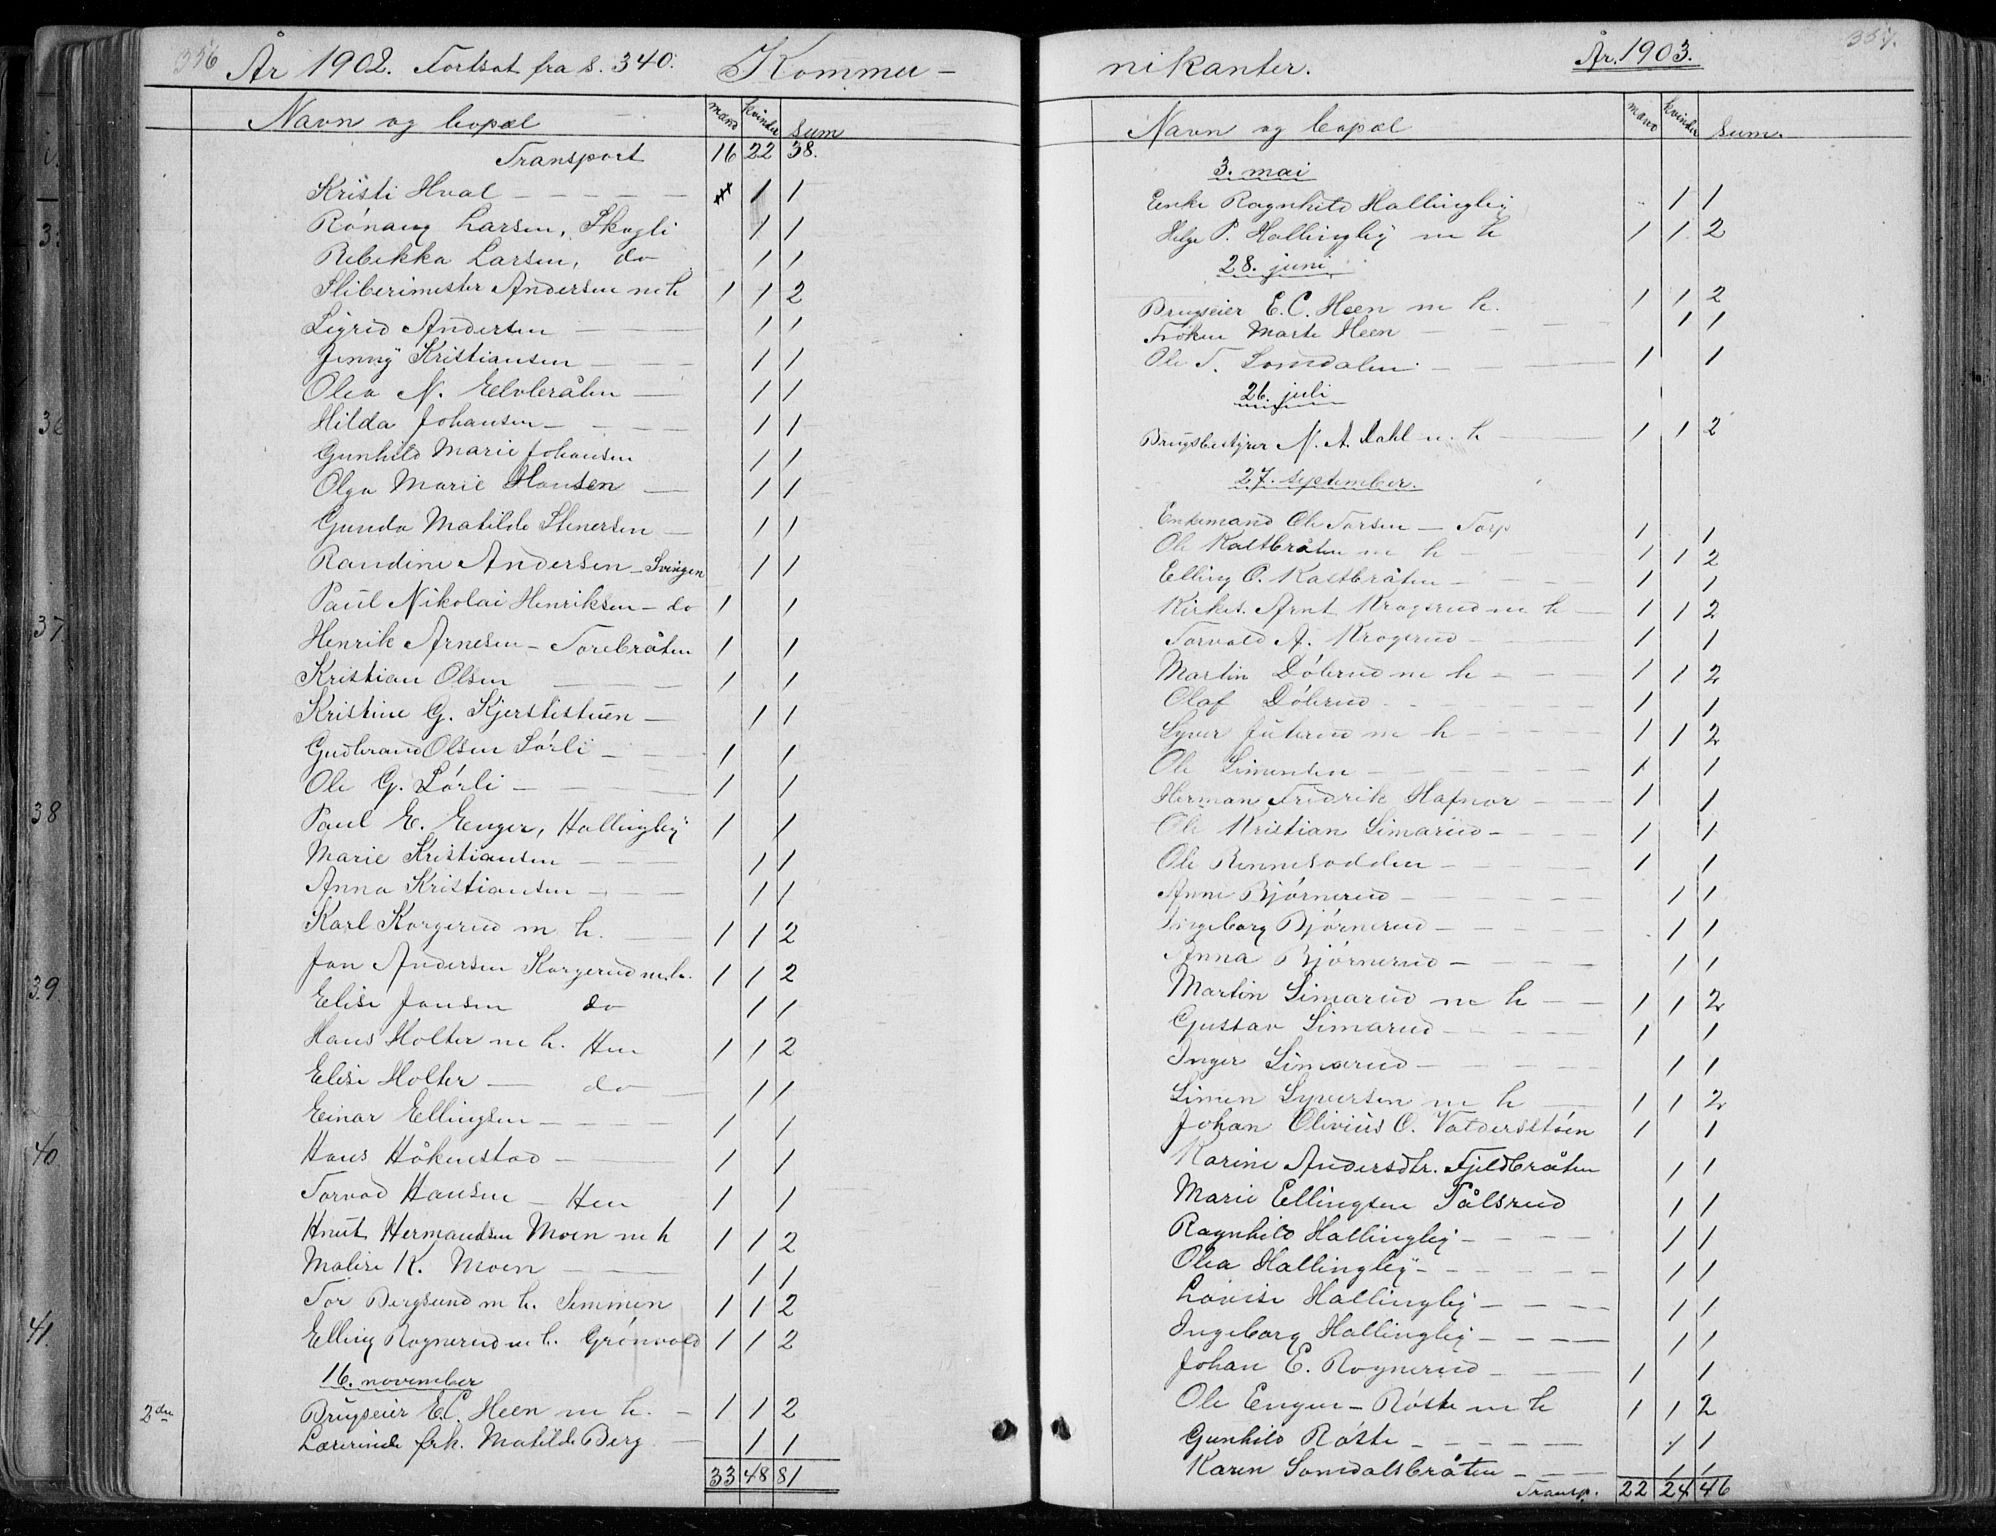 336 År 1902. Fortsat fra s. 340. Kommu-
Navn og bopæl mænd kvinder Sum
Transport 16 22 38.
Kristi Hval — 1 1
Rónaug Larsen, Skogli 1 1
Rebekka Larsen, do 1 1
Sliberimester Andersen m h 1 1 2
Sigrid Andersen — 1 1
Jenny Kristiansen — 1 1
Olea N. Elvbråten — 1 1
Hilda Johansen — 1 1
Gunhild Marie Johansen 1 1
Olga Marie Hansen — 1 1
Gunda Matilde Stenersen — 1 1
Randine Andersen — Svingen 1 1
Paul Nikolai Henriksen — do 1 1
Henrik Arnesen — Torebråten 1 1
Kristian Olsen — 1 1
Kristine G. Kjerstistuen — 1 1
Gudbrand Olsen Sórli — 1 1
Ole G. Sórli — 1 1
Paul E. Enger, Hallingby 1 1
Marie Kristiansen — 1 1
Anna Kristiansen — 1 1
Karl Korgerud m h. — 1 1 2
Jan Andersen Korgerud m. h. 1 1 2
Elise Jansen do 1 1
Hans Holter m h. Hen 1 1 2
Elise Holter — do 1 1
Einar Ellingsen — 1 1
Hans Håkenstad — 1 1
Torvad Hansen — Hen 1 1
Knut Hermandsen Moen m h 1 1 2
Malise K. Moen — 1 1
Tor Bergsund m h. Semmen 1 1 2
Elling Rognerud m h. Grónvold 1 1 2
16. november
2den Brugseier E.C. Heen m h. — 1 1 2
Lærerinde frk. Matilde Berg 1 1
33 48 81
nikanter. År. 1903. 337.
Navn og bopæl mænd kvinder Sum.
3. mai
Enke Ragnhild Hallingby 1 1
Helge P. Hallingby m h 1 1 2
28. juni
Brugseier E.C. Heen m h. 1 1 2
Fröken Marte Heen — 1 1
Ole T. Somdalen — 1 1
26. juli
Brugsbestyrer N. A. Dahl m. h — 1 1 2
27. september.
Enkemand Ole Torsen — Torp 1 1
Ole Kastbråten m h — 1 1 2
Elling O. Kastbråten — 1 1
Kirket. Arnt Krogerud m h — 1 1 2
Torvald A. Krogerud — 1 1
Martin Dóbrud m h — 1 1 2
Olaf Dóbrud — 1 1
Syver Juterud m h — 1 1 2
Ole Simenten — 1 1
Herman Fredrik Hafnor — 1 1
Ole Kristian Simarud — 1 1
Ole Rennesodden — 1 1
Anne Bjórnerud — 1 1
Ingeborg Bjórnerud — 1 1
Anna Bjórnerud — 1 1
Martin Simarud m h — 1 1 2
Gustav Simarud — 1 1
Inger Simarud — 1 1
Simen Syversen m h — 1 1 2
Johan Olivius O. Valdersstóen 1 1
Karine Andersdtr. Fjeldbråten 1 1
Marie Ellingsen Pålsrud 1 1
Ragnhild Hallingby — 1 1
Olea Hallingby — 1 1
Lovise Hallingby — 1 1
Ingeborg Hallingby — 1 1
Johan E. Rognerud — 1 1
Ole Enger — Róste m h 1 1 2
Gunhild Róste — 1 1
Karen Somdalsbråten — 1 1
Transp. 22 24 46